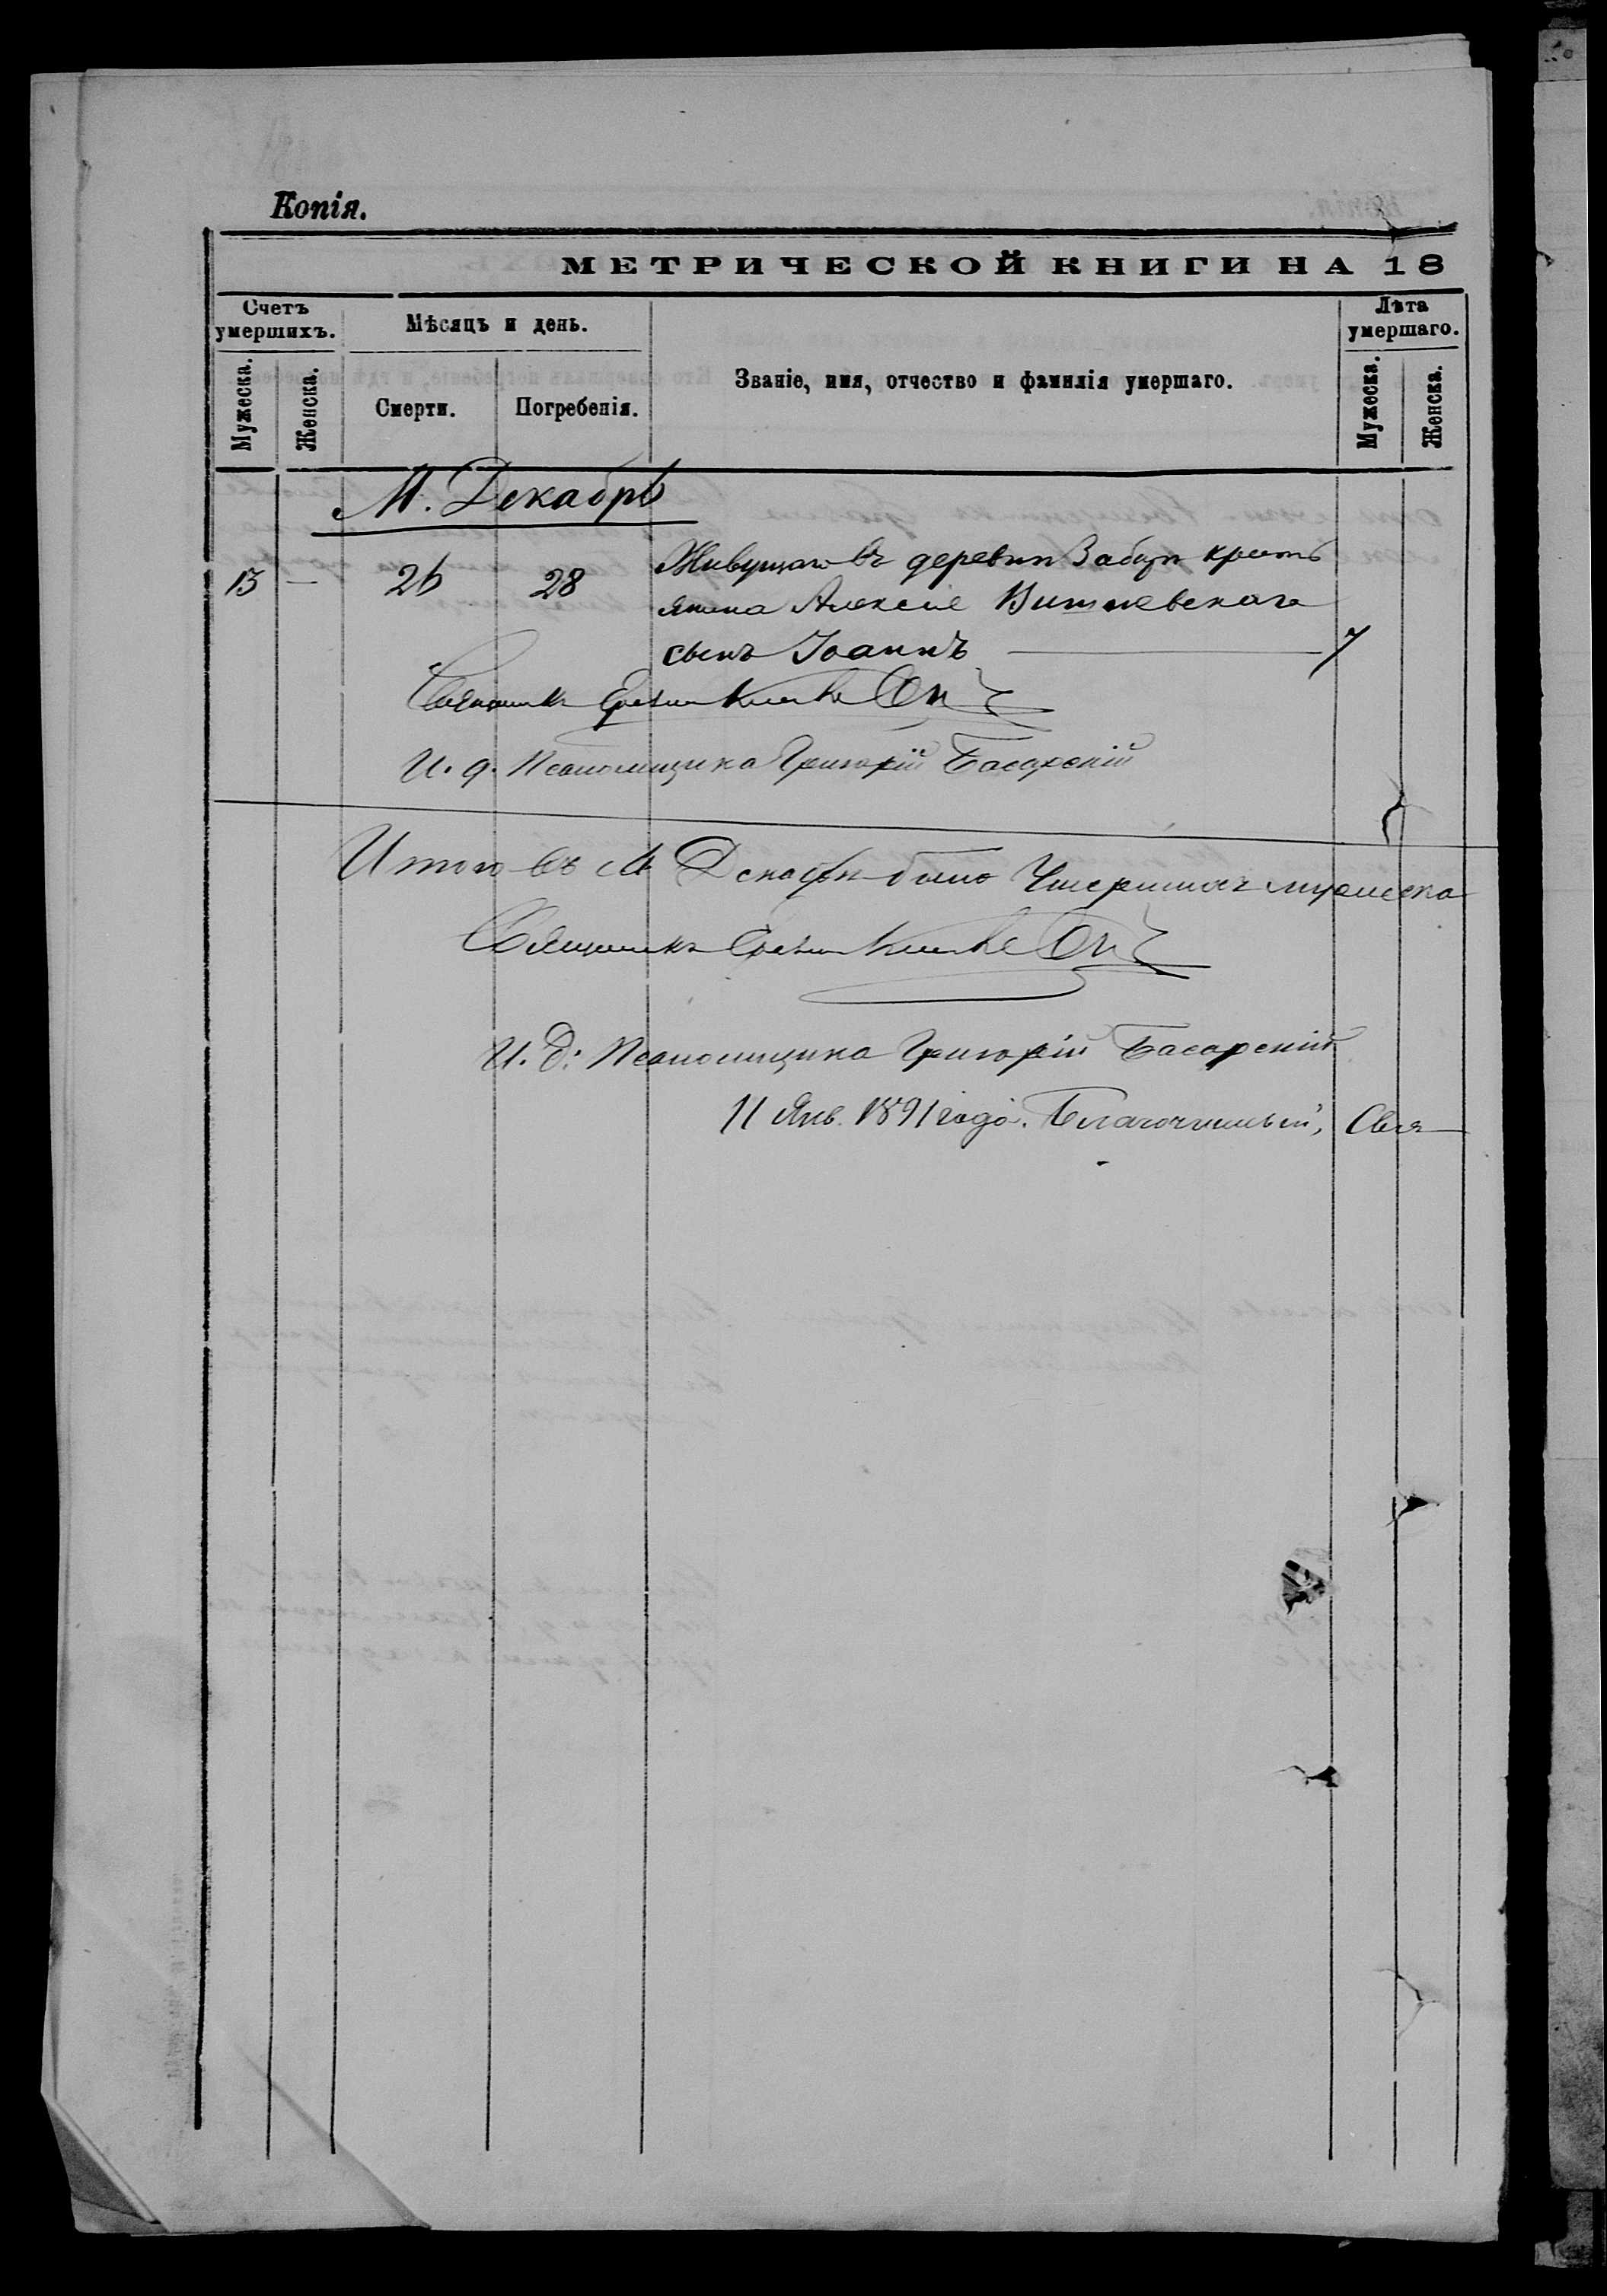 Копія.
МЕТРИЧЕСКОЙ КНИГИ НА 18
Счетъ умершихъ.
Мѣсяцъ и день.
Званіе, имя, отчество и фамилія умершаго.
Лѣта умершаго.
Мужеска.
Женска.
Смерти.
Погребенія.
Мужеска.
Женска.
М. Декабрь
13 — 26 28 Живущаго въ деревни кресть
янина Алексія Вишневскаго
сынъ Іоаннъ — 7
Священникъ
И. д. Псаломщика Григорій Басарскій
Итого въ М Декабрѣ было Умершихъ мужеска
Священникъ
И. д: Псаломщика Григорій Басарскій
11 Янв. 1891 года. Благочинный, Свя